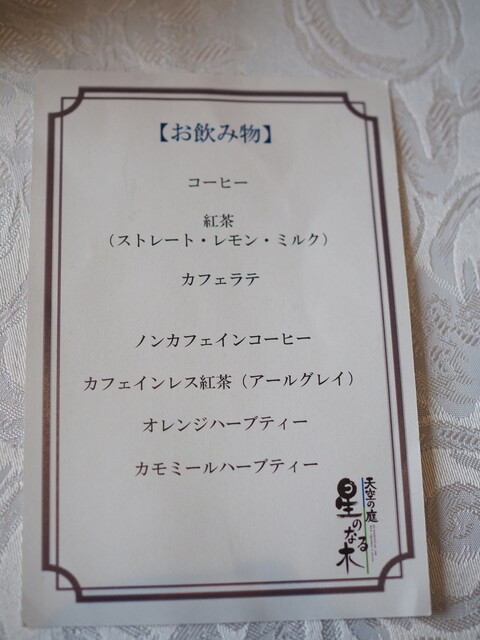 【お飲み物】
コーヒー
紅茶
（ストレート・レモン・ミルク）
カフェラテ
ノンカフェインコーヒー
カフェインレス紅茶（アールグレイ）
オレンジハーブティー
カモミールハーブティー
天空の庭
星のなる木